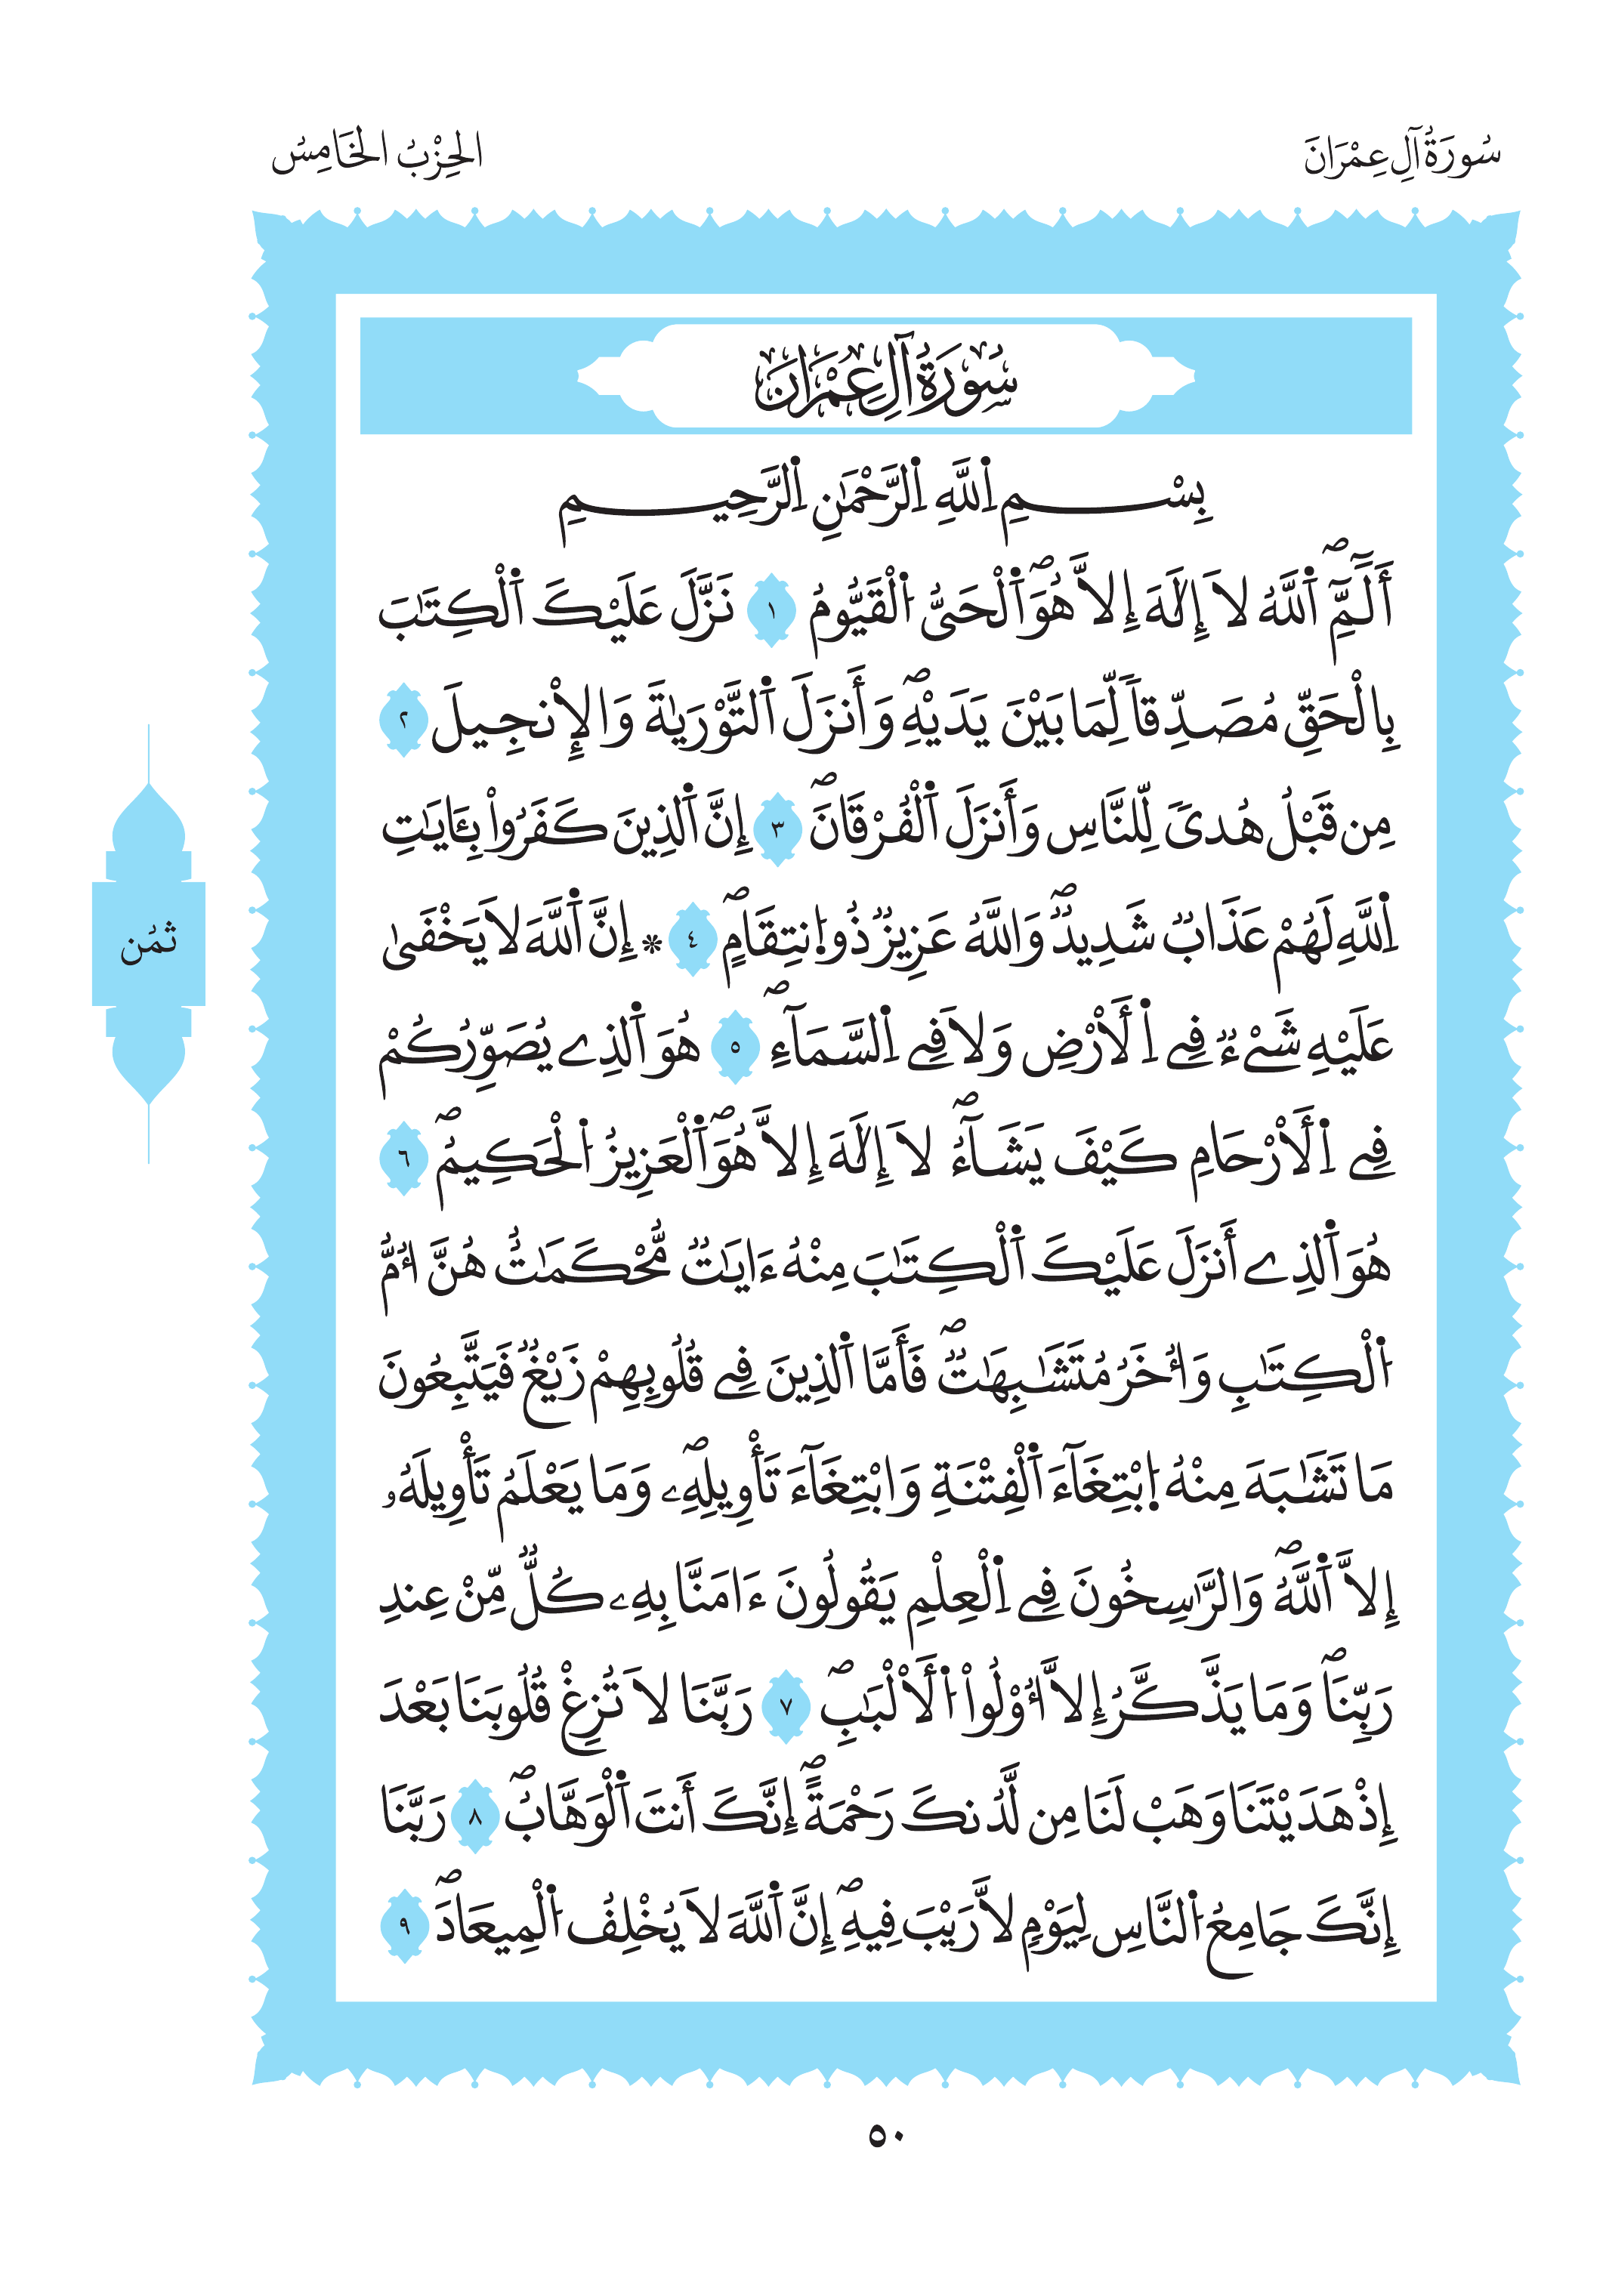 سُورَةُ آلِ عِمْرَانَ
الحِزْبُ الخَامِسُ
سُورَةُ آلِ عِمْرَانَ
بِسْمِ اِ۬للَّهِ اِ۬لرَّحْمَٰنِ اِ۬لرَّحِيمِ
أَلَٓمِّٓۖ اَ۬للَّهُ لَآ إِلَٰهَ إِلَّا هُوَۖ اَ۬لْحَىُّ اُ۬لْقَيُّومُ ١ نَزَّلَ عَلَيْكَ اَ۬لْكِتَٰبَ
بِالْحَقِّ مُصَدِّقاً لِّمَا بَيْنَ يَدَيْهِۖ وَأَنزَلَ اَ۬لتَّوْرَيٰةَ وَالْإِنجِيلَ ٢
مِن قَبْلُ هُدىً لِّلنَّاسِ وَأَنزَلَ اَ۬لْفُرْقَانَۖ ٣ إِنَّ اَ۬لذِينَ كَفَرُواْ بِـَٔايَٰتِ
اِ۬للَّهِ لَهُمْ عَذَابٌ شَدِيدٌۖ وَاللَّهُ عَزِيزٌ ذُو اُ۪نتِقَامٍۖ ٤ * إِنَّ اَ۬للَّهَ لَا يَخْفَىٰ
عَلَيْهِ شَےْءٌ فِے اِ۬لْأَرْضِ وَلَا فِے اِ۬لسَّمَآءِۖ ٥ هُوَ اَ۬لذِے يُصَوِّرُكُمْ
فِے اِ۬لْأَرْحَامِ كَيْفَ يَشَآءُۖ لَآ إِلَٰهَ إِلَّا هُوَۖ اَ۬لْعَزِيزُ اُ۬لْحَكِيمُۖ ٦
هُوَ اَ۬لذِے أَنزَلَ عَلَيْكَ اَ۬لْكِتَٰبَ مِنْهُ ءَايَٰتٌ مُّحْكَمَٰتٌ هُنَّ أُمُّ
اُ۬لْكِتَٰبِ وَأُخَرُ مُتَشَٰبِهَٰتٌۖ فَأَمَّا اَ۬لذِينَ فِے قُلُوبِهِمْ زَيْغٌ فَيَتَّبِعُونَ
مَا تَشَٰبَهَ مِنْهُ اُ۪بْتِغَآءَ اَ۬لْفِتْنَةِ وَابْتِغَآءَ تَأْوِيلِهِۦۖ وَمَا يَعْلَمُ تَأْوِيلَهُۥٓ
إِلَّا اَ۬للَّهُۖ وَالرَّٰسِخُونَ فِے اِ۬لْعِلْمِ يَقُولُونَ ءَامَنَّا بِهِۦ كُلٌّ مِّنْ عِندِ
رَبِّنَاۖ وَمَا يَذَّكَّرُ إِلَّآ أُوْلُواْ اُ۬لْأَلْبَٰبِۖ ٧ رَبَّنَا لَا تُزِغْ قُلُوبَنَا بَعْدَ
إِذْ هَدَيْتَنَا وَهَبْ لَنَا مِن لَّدُنكَ رَحْمَةًۖ إِنَّكَ أَنتَ اَ۬لْوَهَّابُۖ ٨ رَبَّنَآ
إِنَّكَ جَامِعُ اُ۬لنَّاسِ لِيَوْمٍ لَّا رَيْبَ فِيهِۖ إِنَّ اَ۬للَّهَ لَا يُخْلِفُ اُ۬لْمِيعَادَۖ ٩
ثمُن
٥٠